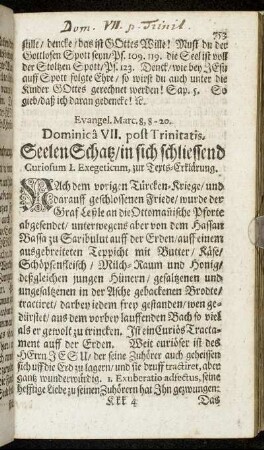 Dom. VII. p. Trinit.
stille/ dencke/ das ist GOttes Wille! Must du der
Gottlosen Spott seyn/ Ps. 109. 119. die Seel ist voll
der Stoltzen Spott/ Ps. 123. Denck/ wie bey JEsu
auff Spott folgte Ehre/ so wirst du auch unter die
Kinder GOttes gerechnet werden! Sap. 5. So
gieb/ daß ich daran gedencke! ꝛc.
Evangel. Marc. 8, 8-20.
Dominicâ VII. post Trinitatis.
Seelen Schatz/ in sich schliessend
Curiosum I. Exegeticum, zur Texts-Erklärung.
NAch dem vorigen Türcken-Kriege/ und
darauff geschlossenen Friede/ wurde der
Graf Leßle an die Ottomanische Pforte
abgesendet/ unterwegens aber von dem Hassan
Bassa zu Saribulut auff der Erden/ auff einem
ausgebreiteten Teppicht mit Butter/ Käse/
Schöpsenfleisch/ Milch-Raum und Honig/
deßgleichen jungen Hünern/ gesaltzenen und
ungesaltzenen in der Asche gebackenen Brodte/
tractiret/ darbey jedem frey gestanden/ wen ge-
dürstet/ aus dem vorbey lauffenden Bach so viel
als er gewolt zu trincken. Ist ein Curiös Tracta-
ment auff der Erden. Weit curiöser ist des
HErrn JESU/ der seine Zuhörer auch geheissen
sich uff die Erd zu lagern/ und sie druff tractiret/ aber
gantz wunderwürdig. 1. Exuboratio adjectus, seine
hefftige Liebe zu seinen Zuhörern hat Jhn gezwungen:
Kkk 4 Das